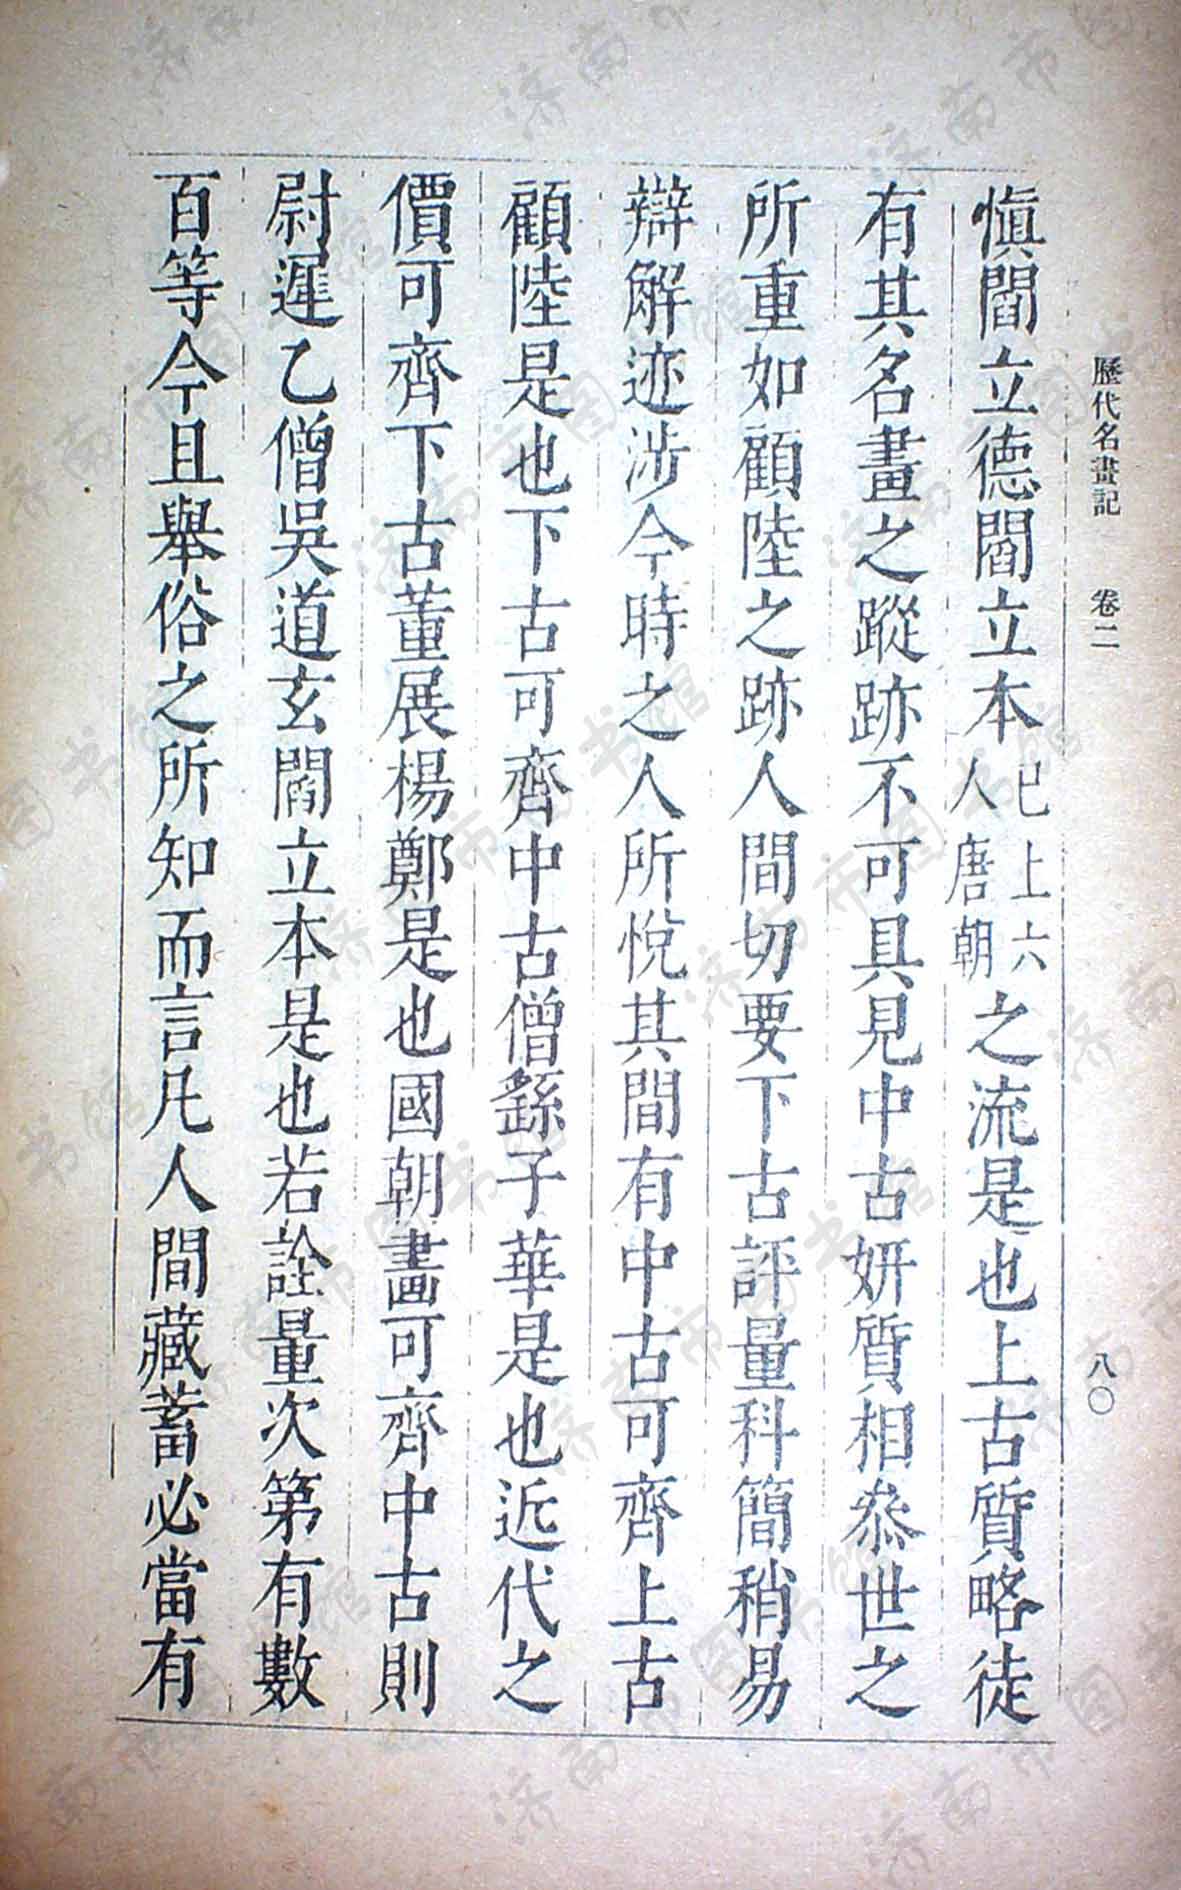 歷代名畫記 卷二 八〇
愼閻立德閻立本已上六人唐朝之流是也上古質略徒
有其名畫之蹤跡不可具見中古妍質相叅世之
所重如顧陸之跡人間切要下古評量科簡稍易
辯解迹涉今時之人所悅其間有中古可齊上古
顧陸是也下古可齊中古僧繇子華是也近代之
價可齊下古董展楊鄭是也國朝畫可齊中古則
尉遲乙僧吳道玄閻立本是也若詮量次第有數
百等今且舉俗之所知而言凡人間藏蓄必當有
济南市图书馆